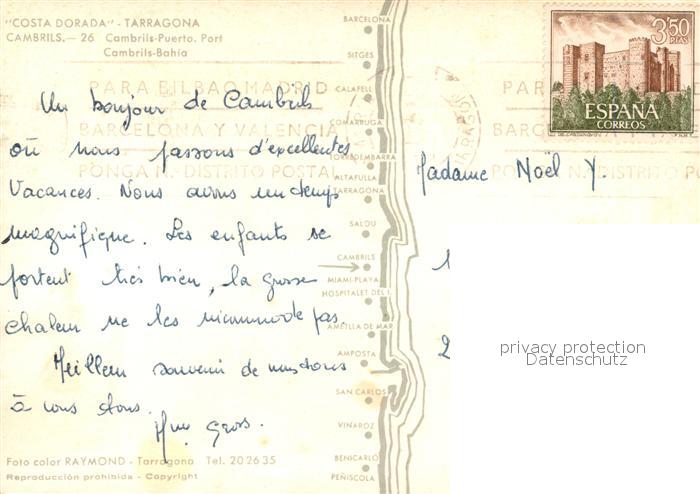 "COSTA DORADA" - TARRAGONA
CAMBRILS.— 26 Cambrils-Puerto. Port
Cambrils-Bahía
Un bonjour de Cambrils
où nous passons d'excellentes
vacances. Nous avons un temps
magnifique. Les enfants se
portent très bien, la grosse
chaleur ne les incommode pas
Meilleur souvenir de nous tous
à vous tous.
Mme Gros.
Foto color RAYMOND - Tarragona Tel. 20 26 35
Reproducción prohibida - Copyright
BARCELONA
SITGES
CALAFELL
COMARRUGA
TORREDEMBARRA
ALTAFULLA
TARRAGONA
SALOU
CAMBRILS
MIAMI-PLAYA
HOSPITALET DEL I.
AMETLLA DE MAR
AMPOSTA
SAN CARLOS
VINAROZ
BENICARLÓ
PEÑISCOLA
PARA BILBAO MADRID
BARCELONA Y VALENCIA
PONGA N. DISTRITO POSTAL
3'50
PTAS
ESPAÑA
CORREOS
Madame Noël Y.
privacy protection
Datenschutz